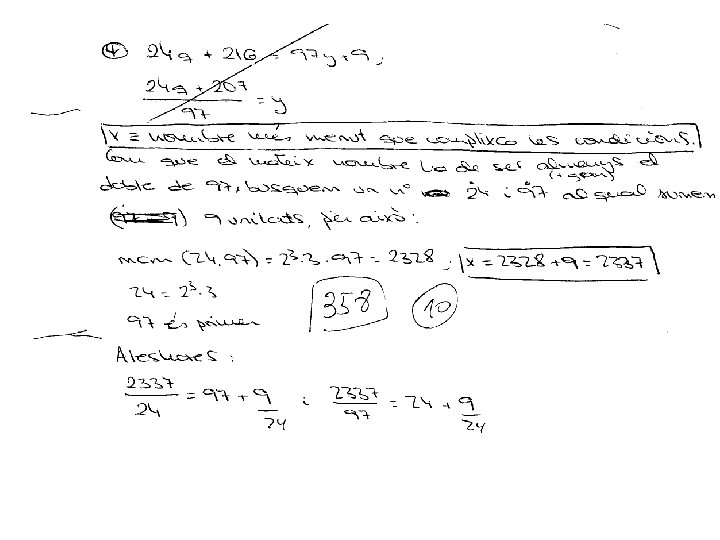 ④ 24q + 216 = 97y + 9;
24q + 207 / 97 = y
x ≡ nombre més menut que complixca les condicions.
Com que el mateix nombre ha de ser almenys el
doble de 97, busquem un nº 24 i 97 al qual sumem
9 unitats, per això:
mcm (24,97) = 2³·3·97 = 2328; x = 2328 + 9 = 2337
24 = 2³·3
358 10
97 és primer
Aleshores:
2337/24 = 97 + 9/24 i 2337/97 = 24 + 9/24